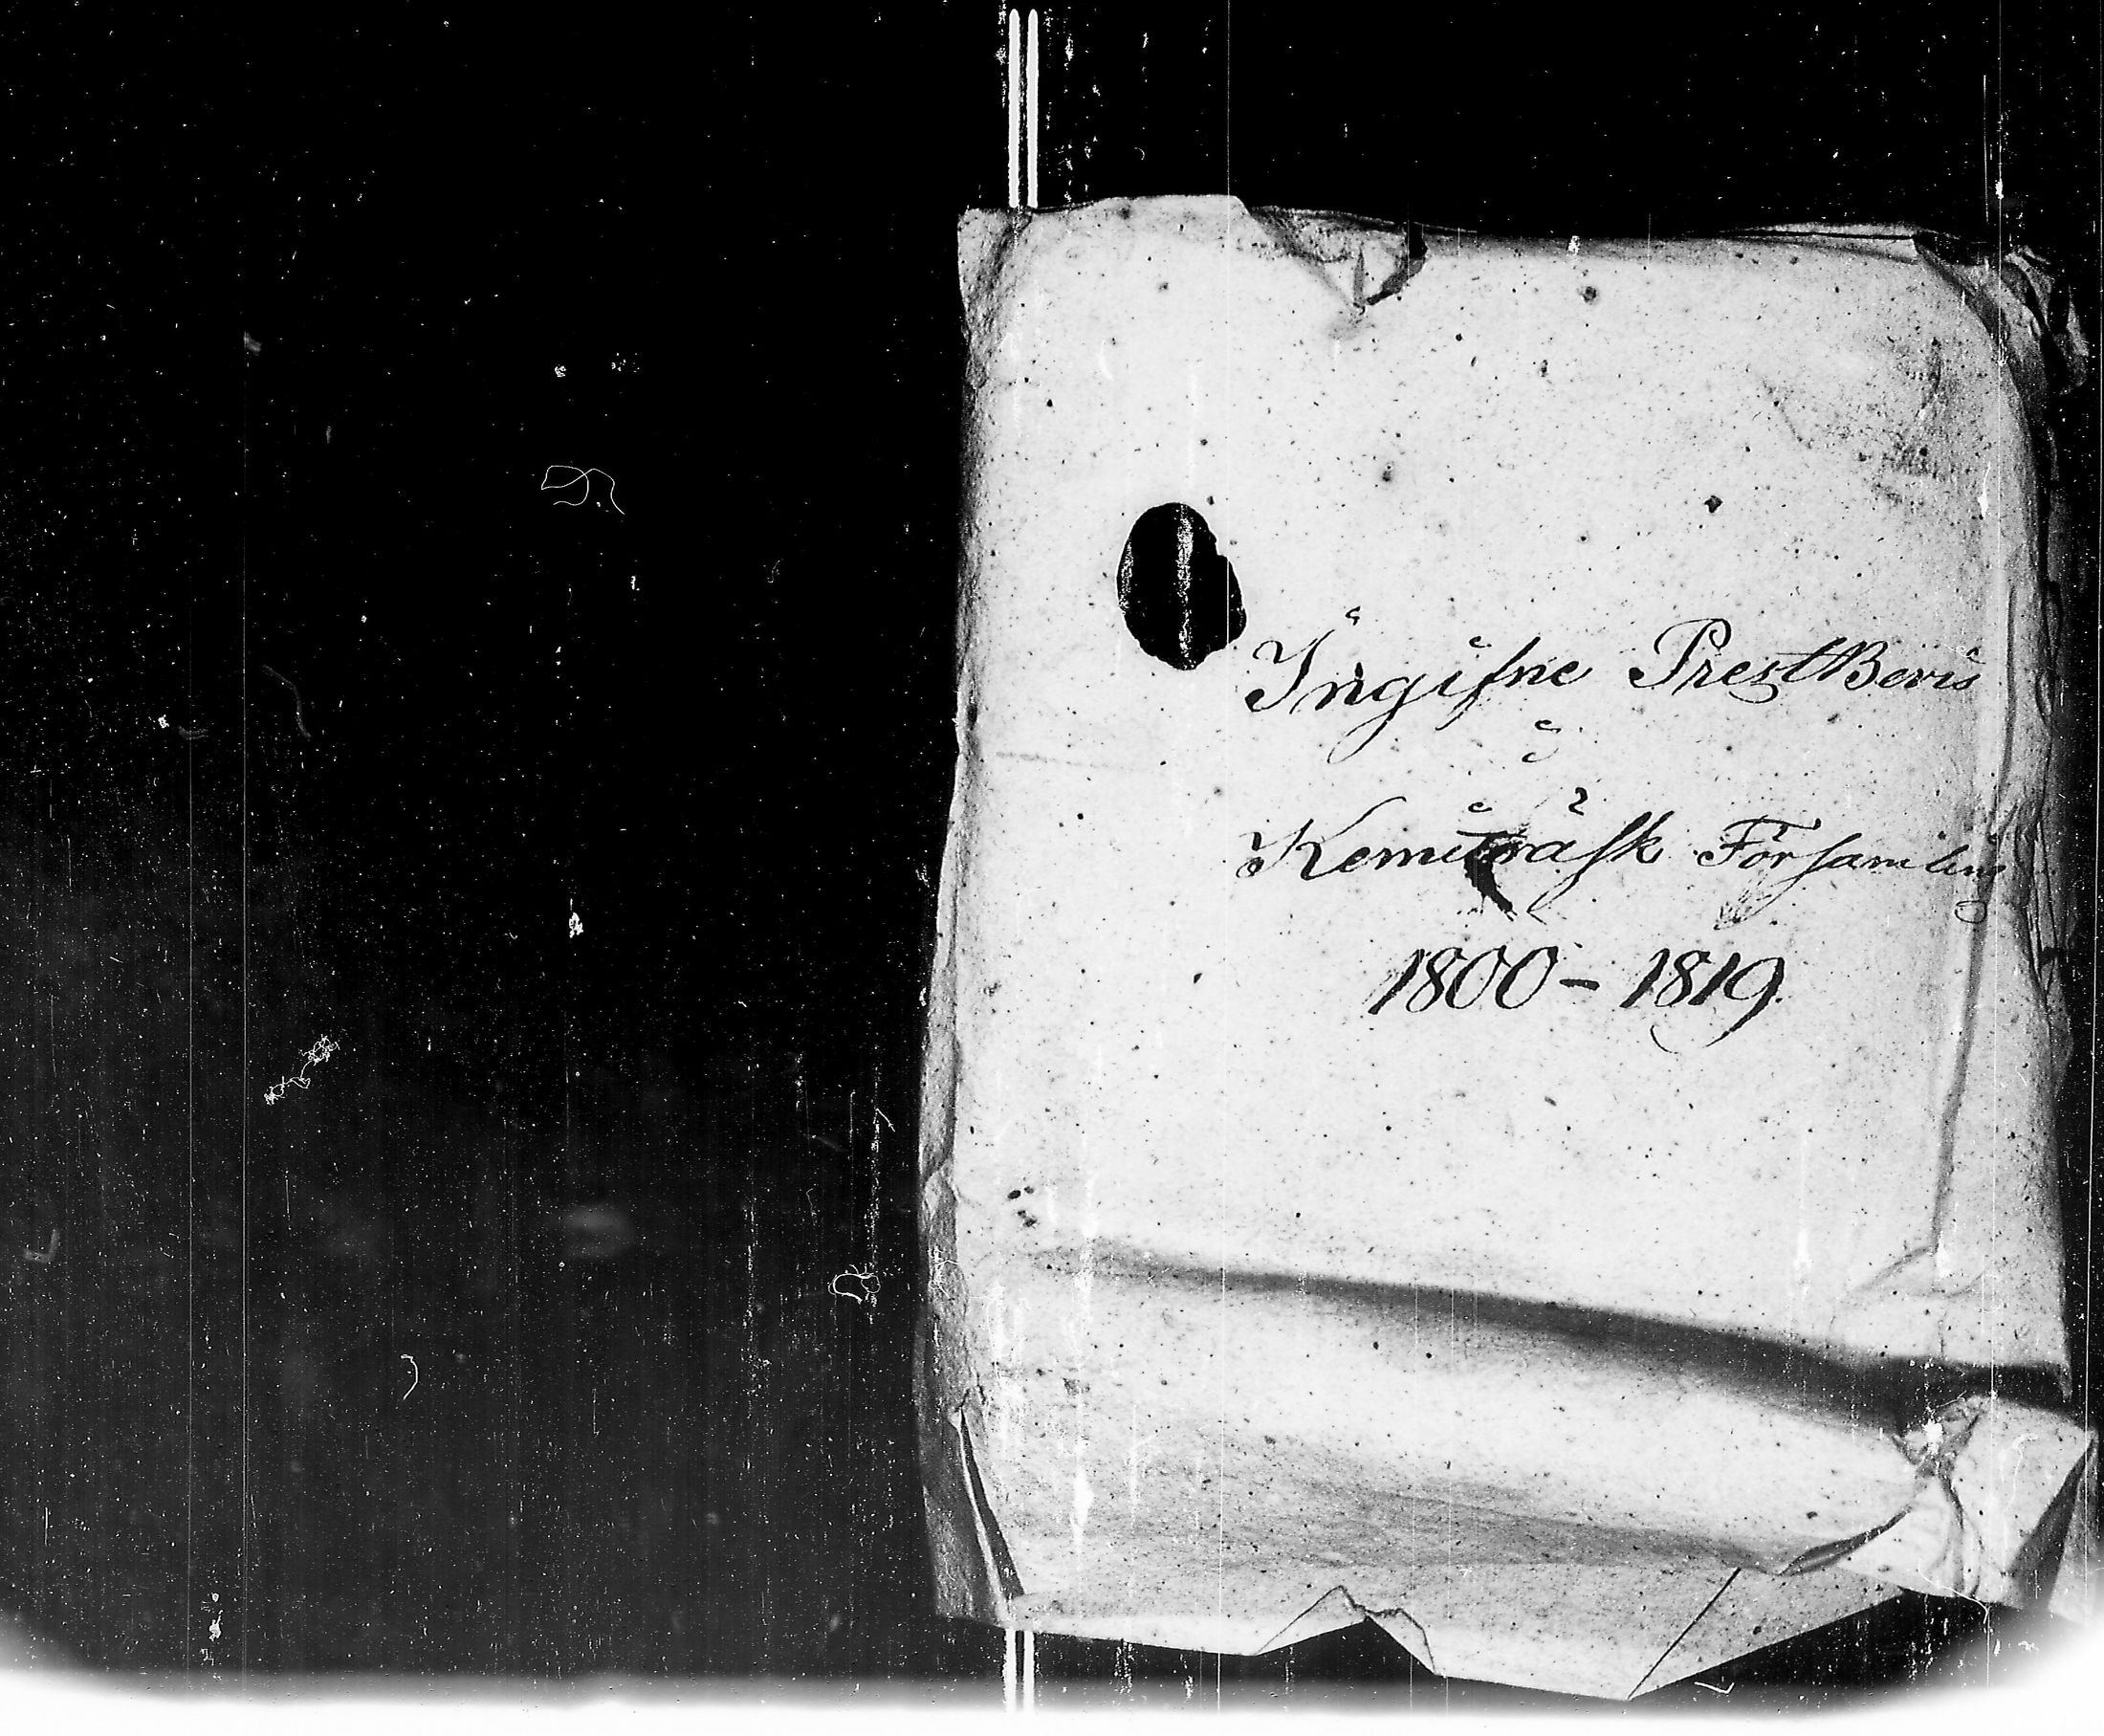 Ingifne PrestBevis
i
Kemiträsk Församling
1800 - 1819.